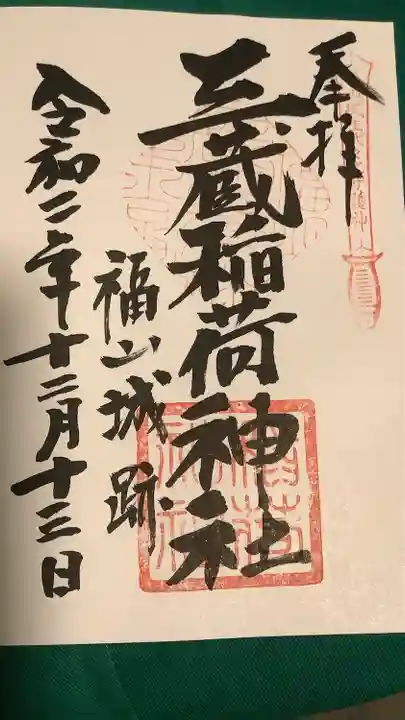 奉拝
三蔵稲荷神社
福山城跡
令和二年十二月十三日